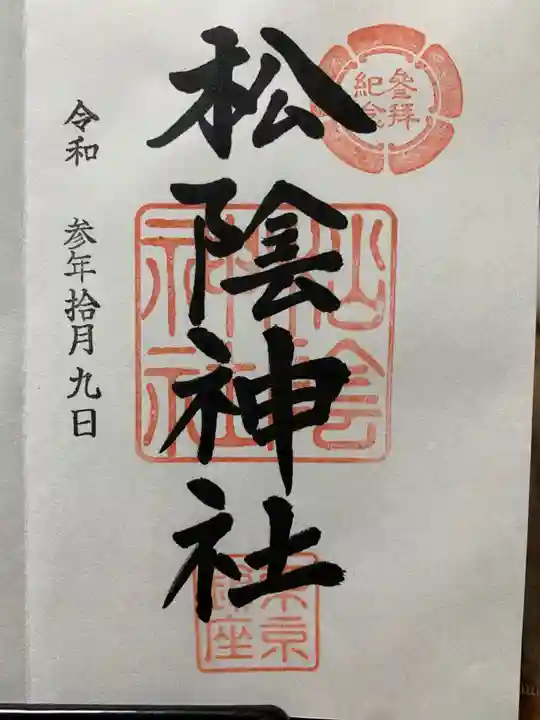 參拜
紀念
松陰神社
松陰
神社
東京
鎮座
令和 参年拾月九日